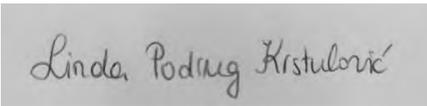 Linda Podrug Krstulović